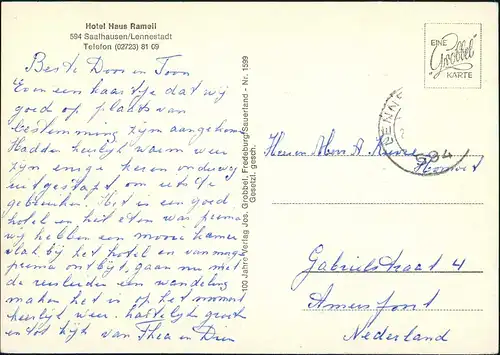 Hotel Haus Rameil
594 Saalhausen/Lennestadt
Telefon (02723) 81 09
Beste Door en Toon
Even een kaartje dat wij
goed op plaats van
bestemming zijn aangekomen
Hadden heerlijk warm weer
zijn enige keren onderweg
uitgestapt om iets te
gebruiken. Het is een goed
hotel en het eten was prima
wij hebben een mooie kamer
vlak bij het hotel en vanmorgen
prima ontbijt, gaan nu met
de reisleider een wandeling
maken het is op het moment
heerlijk weer. hartelijke groeten
en tot kijk van Thea en Dien
100 Jahre Verlag Jos. Grobbel, Fredeburg/Sauerland - Nr. 1599
Gesetzl. gesch.
EINE
"Grobbel"
KARTE
LENN
594
Heer en Mevr. A.
Gabrielstraat 4
Amersfoort
Nederland